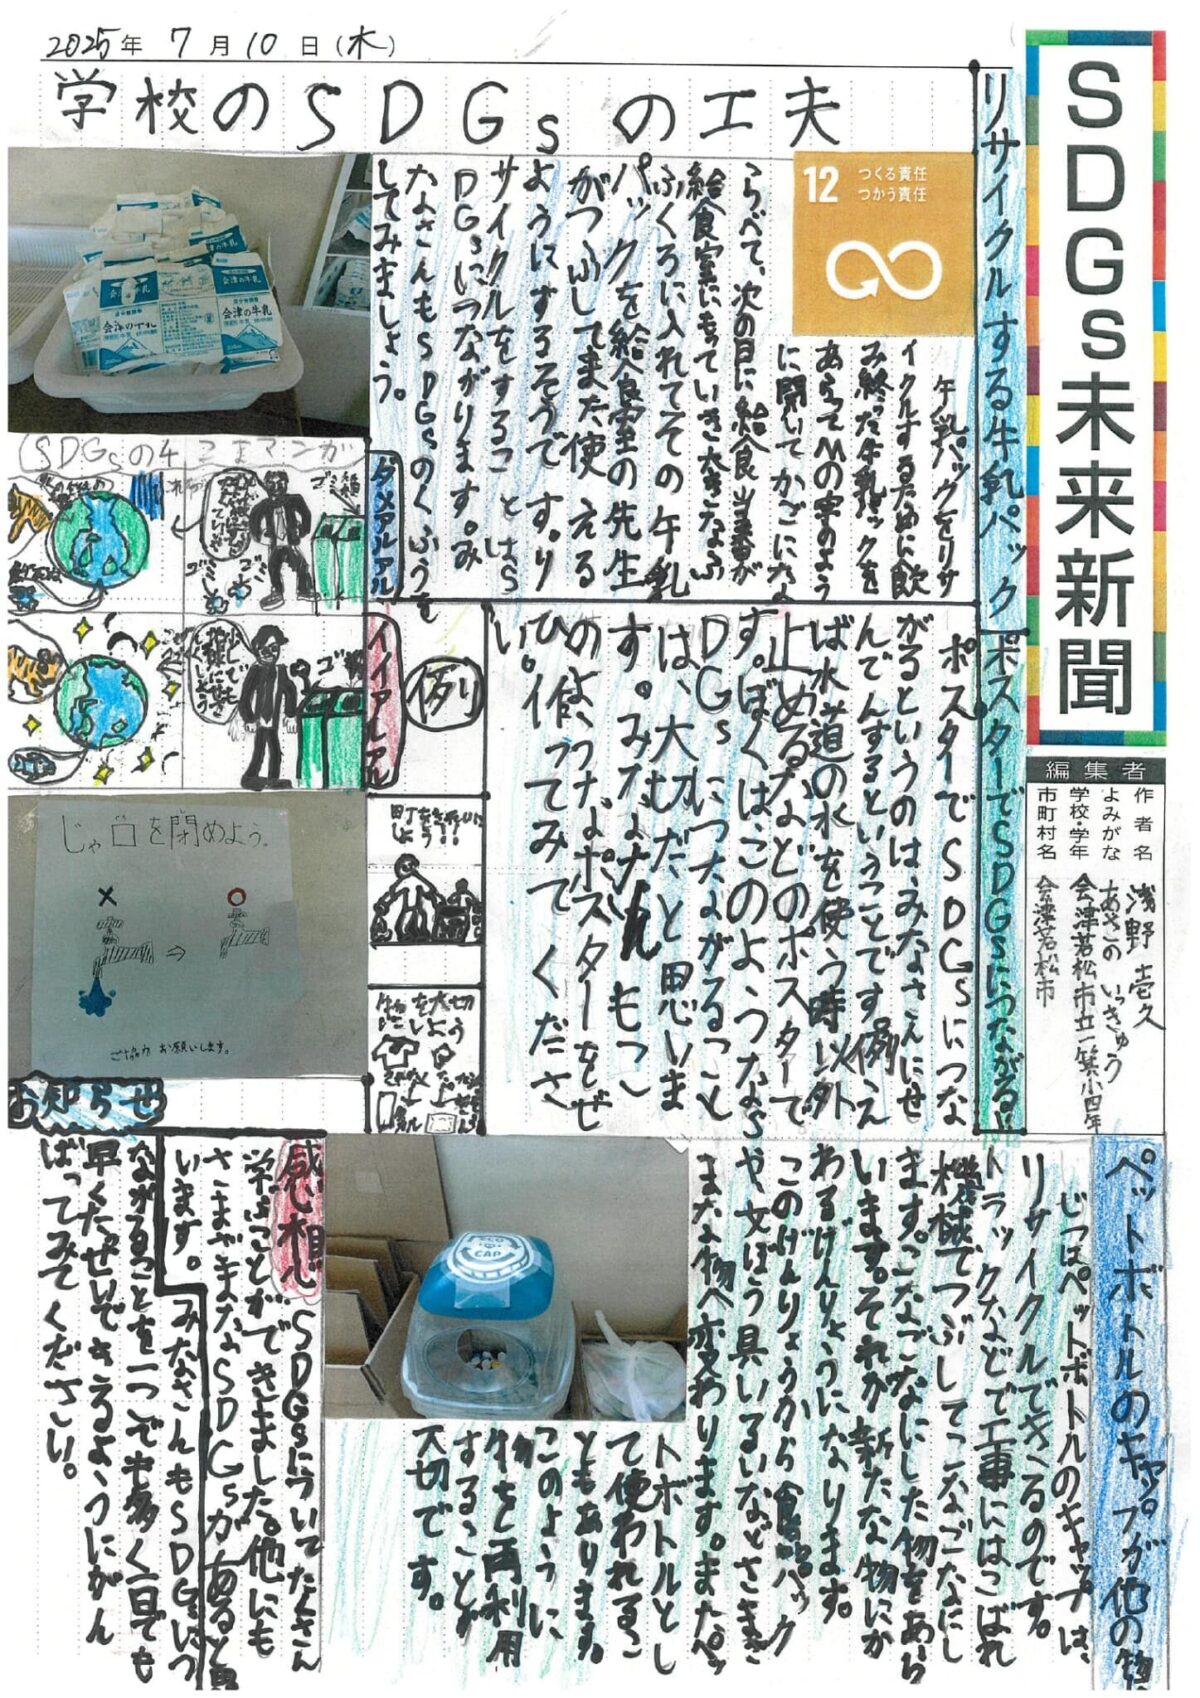 2025年 7月10日(木)
SDGs未来新聞
編集者
作者名 浅野 壱久
よみがな あさの いっきゅう
学校・学年 会津若松市立一箕小四年
市町村名 会津若松市
学校のSDGsの工夫
リサイクルする牛乳パック
12 つくる責任
つかう責任
牛乳パックをリサ
イクルするために飲
み終った牛乳パックを
あらってMの字のよう
に開いてかごになな
らべて、次の日に給食当番が
給食室にもっていき大きなふ
ふくろに入れてその牛乳
パックを給食室の先生
がつぶしてまた使える
ようにするそうです。り
サイクルをすることはS
DGsにつながります。み
なさんもSDGsのくふうを
してみましょう。
会津の牛乳
ポスターでSDGsにつながる!!
ポスターでSDGsにつな
がるというのは、みなさんにせ
んでんするということです例え
ば水道の水を使う時以外
止めるなどのポスターで
す。ぼくはこのようなS
DGsにつながること
は、大切だと思いま
す。みなさんもこ
のようなポスターをぜ
ひ作ってみてくださ
い。
SDGsの4こまマンガ
ダメアルアル
イイアルアル
例
ゴミ
町をきれいに
しよう!!
物を大切
に使おう
じゃ口を閉めよう。
ご協力お願いします。
ペットボトルのキャップが他の物
じつはペットボトルのキャップは、
リサイクルできるのです。
トラックなどで工事にはこばれ
機械でつぶしてこなごなにし
ます。こなごなにした物をあら
います。それが新たな物にか
わるげんりょうになります。
このげんりょうから食品パック
や文ぼう具いるいなどさまざ
まな物へ変わります。またペッ
トボトルとし
て使われるこ
ともあります。
このように
物を再利用
することが
大切です。
ECO
CAP
感想
SDGsについてたくさん
学ぶことができました。他にも
さまざまなSDGsがあると思
います。
お知らせ
みなさんもSDGsにつ
ながることを一つでも多く一日でも
早くたっせいできるようにがん
ばってみてください。